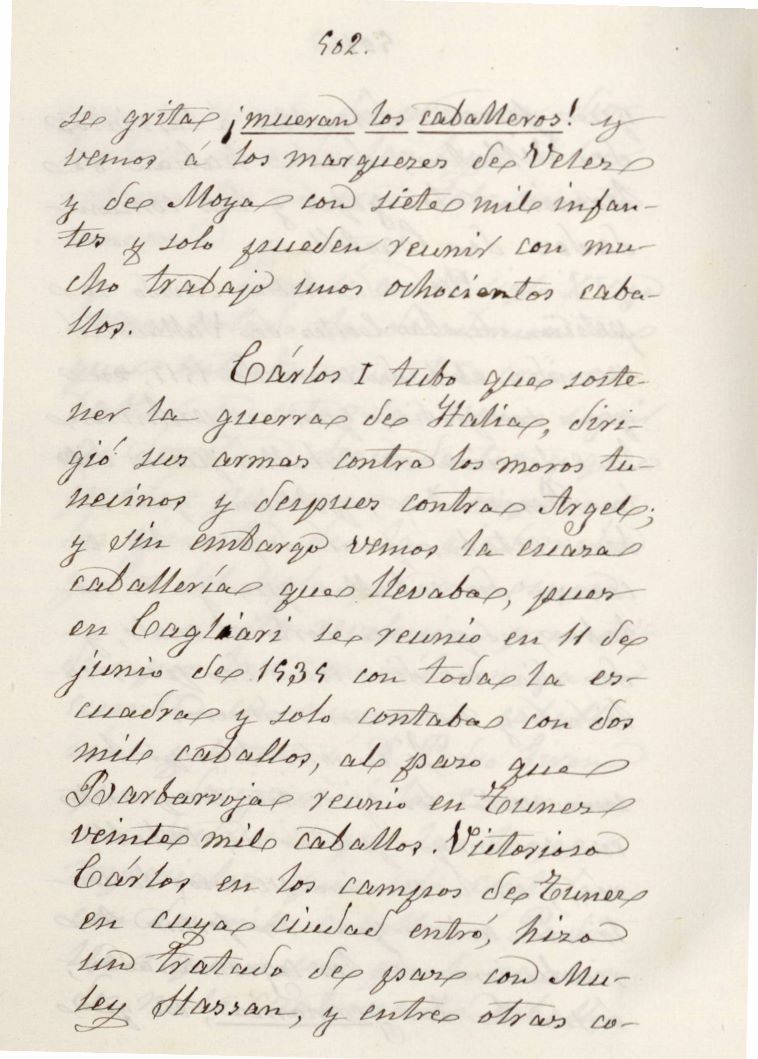 502.
se grita ¡mueran los caballeros! y
vemos á los marqueses de Velez
y de Moya con siete mil infan-
tes y solo pueden reunir con mu-
cho trabajo unos ochocientos caba-
llos.
Cárlos I tubo que soste-
ner la guerra de Italia, diri-
gió sus armas contra los moros tu-
necinos y despues contra Argel;
y sin embargo vemos la escasa
caballería que llevaba, pues
en Cagliari se reunio en 11 de
junio de 1535 con toda la es-
cuadra y solo contaba con dos
mil caballos, al paso que
Barbarroja reunio en Tunez
veinte mil caballos. Victorioso
Cárlos en los campos de Tunez
en cuya ciudad entró, hizo
un tratado de paz con Mu-
ley Hassan, y entre otras co-